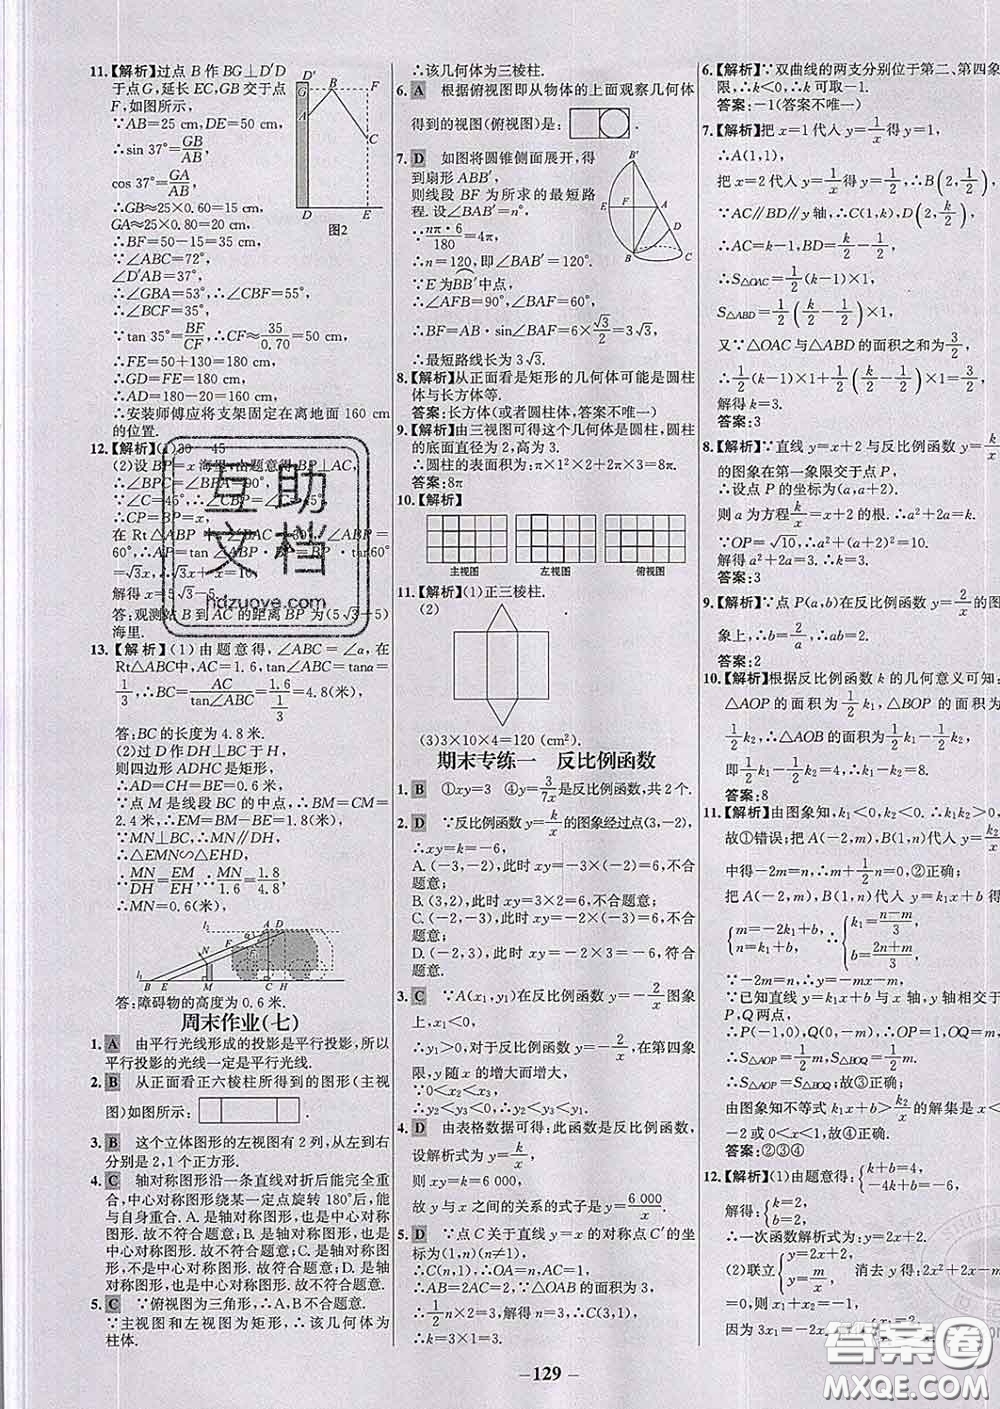 11.【解析】过点 B 作 BG⊥D′D
于点G,延长 EC,GB 交于点
F,如图所示,
∵AB=25 cm,DE=50 cm,
∴sin 37°=GB/AB,
cos 37°=GA/AB,
∴GB≈25×0.60=15 cm,
GA≈25×0.80=20 cm,
∴BF=50-15=35 cm,
∵∠ABC=72°,
∠D′AB=37°,
∴∠GBA=53°,∴∠CBF=55°,
∵tan 35°=BF/CF,∴CF≈35/0.70=50 cm,
∴FE=50+130=180 cm,
∴GD=FE=180 cm,
∴AD=180-20=160 cm,
∴安装师傅应将支架固定在离地面 160 cm
的位置.
D′ B F G A C D E
图2
12.【解析】(1)30 45
(2)设 BP=x 海里,由题意得 BP⊥AC,
∴∠BPC=∠BPA=90°,
∵∠C=45°,∴∠CBP=∠C=45°,
∴CP=BP=x,
在 Rt△ABP 中,∠BAC=30°,∴∠ABP=
60°,∴AP=tan∠ABP·BP=tan 60°·BP
=√3x,∴√3x+x=10,
解得 x=5√3-5,
答:观测站 B 到 AC 的距离 BP 为(5√3-5)
海里.
13.【解析】(1)由题意得,∠ABC=∠α,在
Rt△ABC中,AC=1.6,tan∠ABC=tanα=
1/3,∴BC=AC/tan∠ABC=1.6/(1/3)=4.8(米),
答:BC的长度为 4.8 米.
(2)过 D 作 DH⊥BC 于 H,
则四边形 ADHC 是矩形,
∴AD=CH=BE=0.6,
∵点 M 是线段 BC 的中点,∴BM=CM=
2.4米,∴EM=BM-BE=1.8,
∵MN⊥BC,∴MN∥DH,
∴△EMN∽△EHD,
∴MN/DH=EM/EH,∴MN/1.6=1.8/4.8,
∴MN=0.6(米),
l₂ α A D F N l₁ B E M C H
答:障碍物的高度为 0.6 米.
周末作业(七)
1. A 由平行光线形成的投影是平行投影,所以
平行投影的光线一定是平行光线.
2. B 从正面看正六棱柱所得到的图形(主视
图)如图所示:
3. B 这个立体图形的左视图有 2 列,从左到右
分别是 2,1 个正方形.
4. C 轴对称图形沿一条直线对折后能完全重
合,中心对称图形绕某一定点旋转 180°后,能
与自身重合. A. 是轴对称图形,是中心对称图
形. 故不符合题意;B. 是轴对称图形,是中心对
称图形. 故不符合题意;C. 是轴对称图形,不是
中心对称图形. 故符合题意;D. 是轴
对称图形,也是中心对称图形. 故不符合题意.
5. C ∵俯视图为三角形,∴A、B不合题意.
∵主视图和左视图为矩形,∴该几何体为
柱体.
∴该几何体为三棱柱.
6. A 根据俯视图即从物体的上面观察几何体
得到的视图(俯视图)是:
7. D 如图将圆锥侧面展开,得
到扇形 ABB′,
则线段 BF 为所求的最短路
程. 设∠BAB′=n°,
∵nπ·6/180=4π,
∴n=120,即∠BAB′=120°.
∵E为BB′中点,
∴∠AFB=90°,∠BAF=60°,
∴BF=AB·sin∠BAF=6×√3/2=3√3,
∴最短路线长为 3√3.
B′ E F A B C
8.【解析】从正面看是矩形的几何体可能是圆柱
体与长方体等.
答案:长方体(或者圆柱体,答案不唯一)
9.【解析】由三视图可得这个几何体是圆柱,圆柱
的底面直径为 2,高为 3.
∴圆柱的表面积为:π×1²×2+π×2×3=8π.
答案:8π
10.【解析】
主视图 左视图 俯视图
11.【解析】(1)正三棱柱.
(2)
(3)3×10×4=120 (cm²).
期末专练一 反比例函数
1. B ①xy=3 ④y=3/7x是反比例函数,共 2 个.
2. D ∵反比例函数 y=k/x 的图象经过点(3,-2),
∴xy=k=-6,
A. (-3,-2),此时 xy=-3×(-2)=6,不合
题意;
B. (3,2),此时 xy=3×2=6,不合题意;
C. (-2,-3),此时 xy=-2×(-3)=6,不合
题意;
D. (-2,3),此时 xy=-2×3=-6,符合
题意.
3. C ∵A(x₁,y₁)在反比例函数 y=-2/x图象
上,x₁<0,
∴y₁>0,对于反比例函数 y=-2/x,在第四象
限,y 随 x 的增大而增大,
∵0<x₂<x₃,
∴y₂<y₃<0,∴y₂<y₃<y₁.
4. D 由表格数据可得:此函数是反比例函数,
设解析式为:y=k/x,
则 xy=k=6 000,
故 y 与 x 之间的关系的式子是y=6 000/x.
5. D ∵点 C 关于直线 y=x 的对称点C′的坐
标为(1,n)(n≠1),
∴C(n,1),∴OA=n,AC=1,
∴AB=2AC=2,∵△OAB 的面积为 3,
∴1/2n×2=3,解得 n=3,∴C(3,1),
∴k=3×1=3.
6.【解析】∵双曲线的两支分别位于第二、第四象
限,∴k<0,∴k可取-1.
答案:-1(答案不唯一)
7.【解析】把 x=1代入 y=1/x得 y=1,
∴A(1,1),
把 x=2代入 y=1/x得 y=1/2,∴B(2,1/2),
∵AC∥BD∥y 轴,∴C(1,k),D(2,k/2),
∴AC=k-1,BD=k/2-1/2,
∴S△OAC=1/2(k-1)×1,
S△ABD=1/2(k/2-1/2)×1,
又∵△OAC 与△ABD 的面积之和为3/2,
∴1/2(k-1)×1+1/2(k/2-1/2)×1=3/2,
解得 k=3.
答案:3
8.【解析】∵直线 y=x+2 与反比例函数 y=k/x
的图象在第一象限交于点 P,
∴设点 P 的坐标为(a,a+2),
则 a 为方程k/x=x+2 的根. ∴a²+2a=k.
∵OP=√10,∴a²+(a+2)²=10.
解得 k=3.
答案:3
9.【解析】∵点 P(a,b)在反比例函数 y=2/x的图
象上,∴b=2/a,∴ab=2.
答案:2
10.【解析】根据反比例函数 k 的几何意义可知:
△AOP 的面积为1/2k₁,△BOP 的面积为
1/2k₂,∴△AOB 的面积为1/2k₁-1/2k₂,
即1/2k₁-1/2k₂=4,∴k₁-k₂=8.
答案:8
11.【解析】由图象知,k₁<0,k₂<0. ∴k₁k₂>0,
故①错误;把 A(-2,m),B(1,n)代入 y=k₂/x
中得-2m=n,∴m+1/2n=0,②正确;
把 A(-2,m),B(1,n)代入 y=k₁x+b得
{m=-2k₁+b, n=k₁+b, ∴{k₁=(n-m)/3, b=(2n+m)/3,
∵-2m=n,
∵已知直线 y=k₁x+b与 x轴,y轴相交于
P,Q两点,
∴P(-1,0),Q(0,-m),
∴S△AOP=1/2m,S△BOQ=1/2m,
∴S△AOP=S△BOQ;故③正确;
由图象知不等式 k₁x+b>k₂/x 的解集是 x<
-2或 0<x<1,故④正确.
答案:②③④
12.【解析】(1)由题意得:{k+b=4, -4k+b=-6,
解得:{k=2, b=2,
∴一次函数解析式为:y=2x+2.
(2)联立{y=2x+2, y=m/x 消去 y得:2x²+2x-m
-129-
互助
文档
hdzuowe.com
答案圈
MXQE.COM